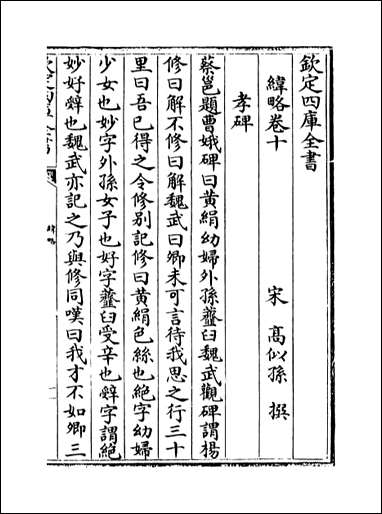 欽定四庫全書
緯略卷十
宋 高似孫 撰
孝碑
蔡邕題曹娥碑曰黄絹幼婦外孫虀臼魏武觀碑謂楊
修曰解不修曰解魏武曰卿未可言待我思之行三十
里曰吾已得之令修别記修曰黄絹色絲也絶字幼婦
少女也妙字外孫女子也好字虀臼受辛也辤字謂絶
妙好辤也魏武亦記之乃與修同嘆曰我才不如卿三